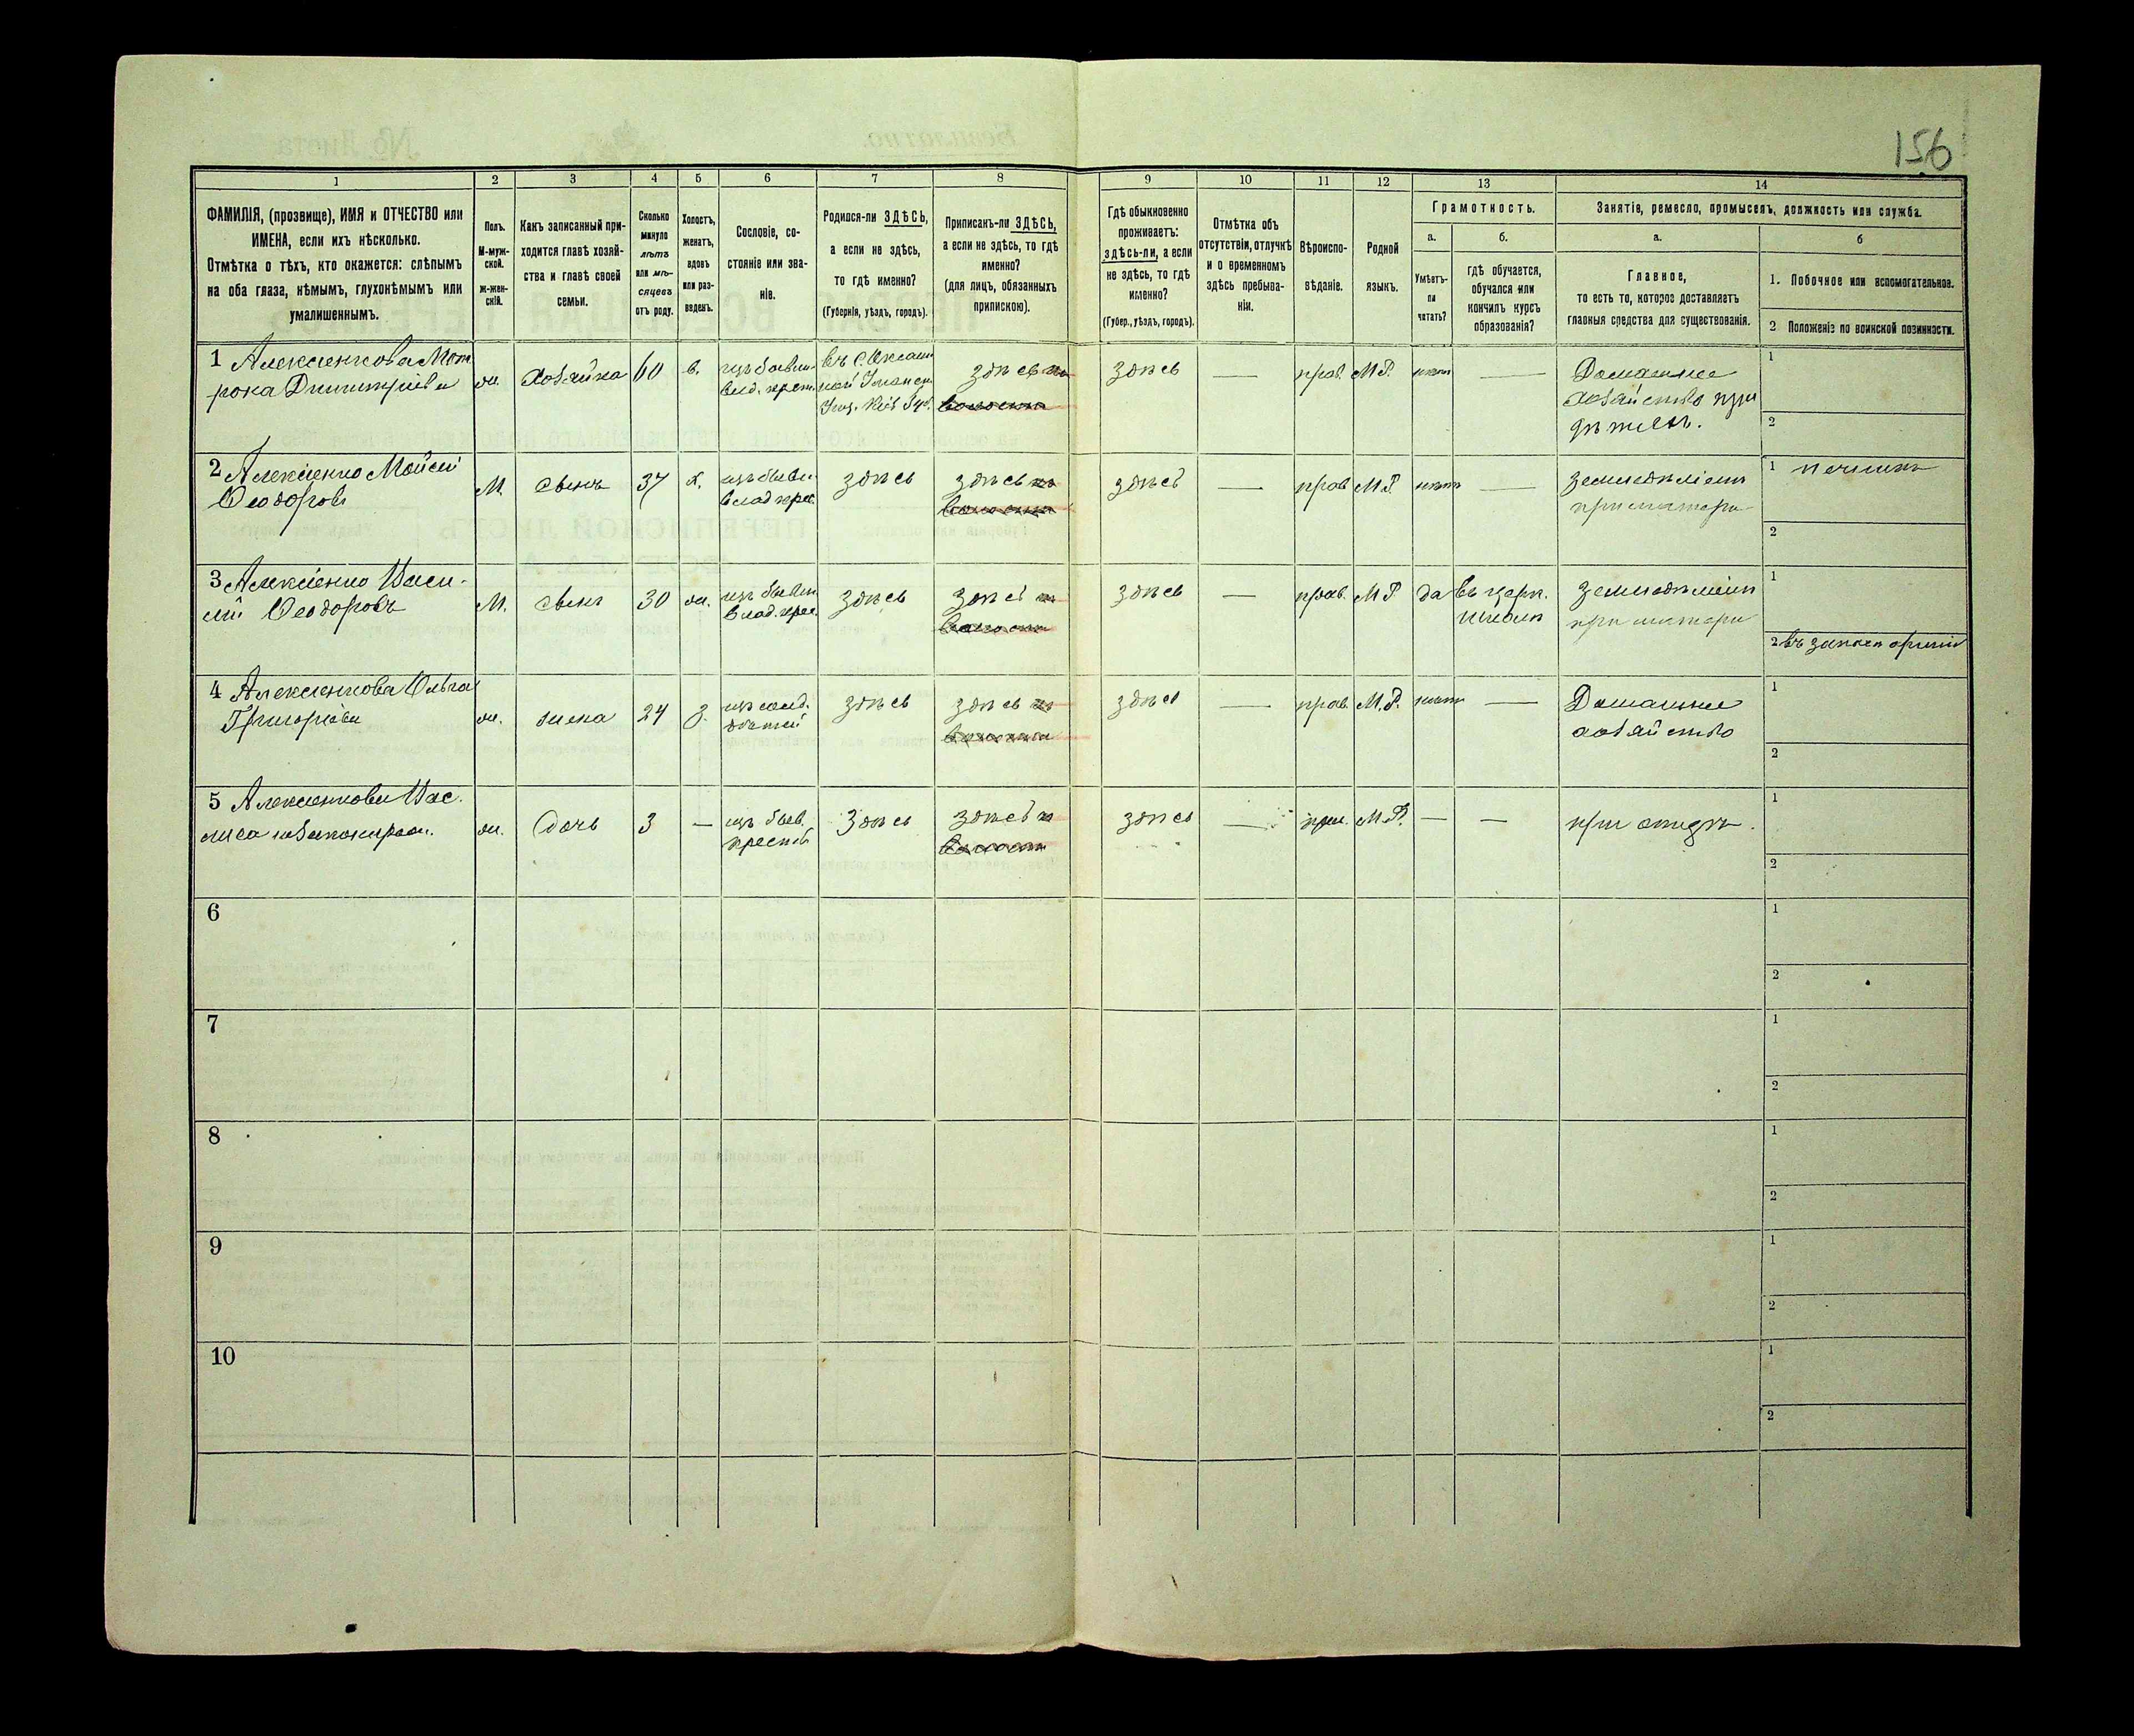 156
1 2 3 4 5 6 7 8 9 10 11 12 13 14
ФАМИЛІЯ, (прозвище), ИМЯ и ОТЧЕСТВО или
ИМЕНА, если ихъ нѣсколько.
Отмѣтка о тѣхъ, кто окажется: слѣпымъ
на оба глаза, нѣмымъ, глухонѣмымъ или
умалишеннымъ.
Полъ.
М-муж-
ской.
ж-жен-
скій.
Какъ записанный при-
ходится главѣ хозяй-
ства и главѣ своей
семьи.
Сколько
минуло
лѣтъ
или мѣ-
сяцевъ
отъ роду.
Холостъ,
женатъ,
вдовъ
или раз-
веденъ.
Сословіе, со-
стояніе или зва-
ніе.
Родился-ли ЗДѢСЬ,
а если не здѣсь,
то гдѣ именно?
(Губернія, уѣздъ, городъ).
Приписанъ-ли ЗДѢСЬ,
а если не здѣсь, то гдѣ
именно?
(для лицъ, обязанныхъ
припискою).
Гдѣ обыкновенно
проживаетъ:
здѣсь-ли, а если
не здѣсь, то гдѣ
именно?
(Губер., уѣздъ, городъ).
Отмѣтка объ
отсутствіи, отлучкѣ
и о временномъ
здѣсь пребыва-
ніи.
Вѣроиспо-
вѣданіе.
Родной
языкъ.
Грамотность.
а.
Умѣетъ-
ли
читать?
б.
гдѣ обучается,
обучался или
кончилъ курсъ
образованія?
Занятіе, ремесло, промыселъ, должность или служба.
а.
Главное,
то есть то, которое доставляетъ
главныя средства для существованія.
б
1. Побочное или вспомогательное.
2 Положеніе по воинской повинности.
1 Алексіенкова Мот
рона Димитріева
ж. Хозяйка 60 в.
изъ бывш.
влад. крест.
здѣсь
здѣсь — прав. М.Р. нѣтъ —
Домашнее
хозяйство при
дѣтяхъ.
1
2
2 Алексіенко Мойсей
Ѳеодоровъ
М. сынъ 37 х.
изъ бывш.
влад. крес.
здѣсь здѣсь
здѣсь — прав М.Р. нѣтъ —
земледѣліемъ
при матери
1
2
3 Алексіенко Васи-
лій Ѳеодоровъ
М. сынъ 30 ж.
изъ бывш.
влад. крес.
здѣсь здѣсь
здѣсь — прав. М.Р да
въ церк.
школѣ
земледѣліемъ
при матери
1
2 въ запасѣ арміи
4 Алексіенкова Ольга
Григоріева
ж. жена 24 з.
изъ солд.
дѣтей
здѣсь здѣсь
здѣсь — прав. М.Р. нѣтъ —
Домашнее
хозяйство
1
2
5 Алексіенкова Вас.
ж. Дочь 3 —
изъ быв.
крестъ
Здѣсь здѣсь
здѣсь — прав. М.Р. — —
при отцѣ
1
2
6
1
2
7
1
2
8
1
2
9
1
2
10
1
2